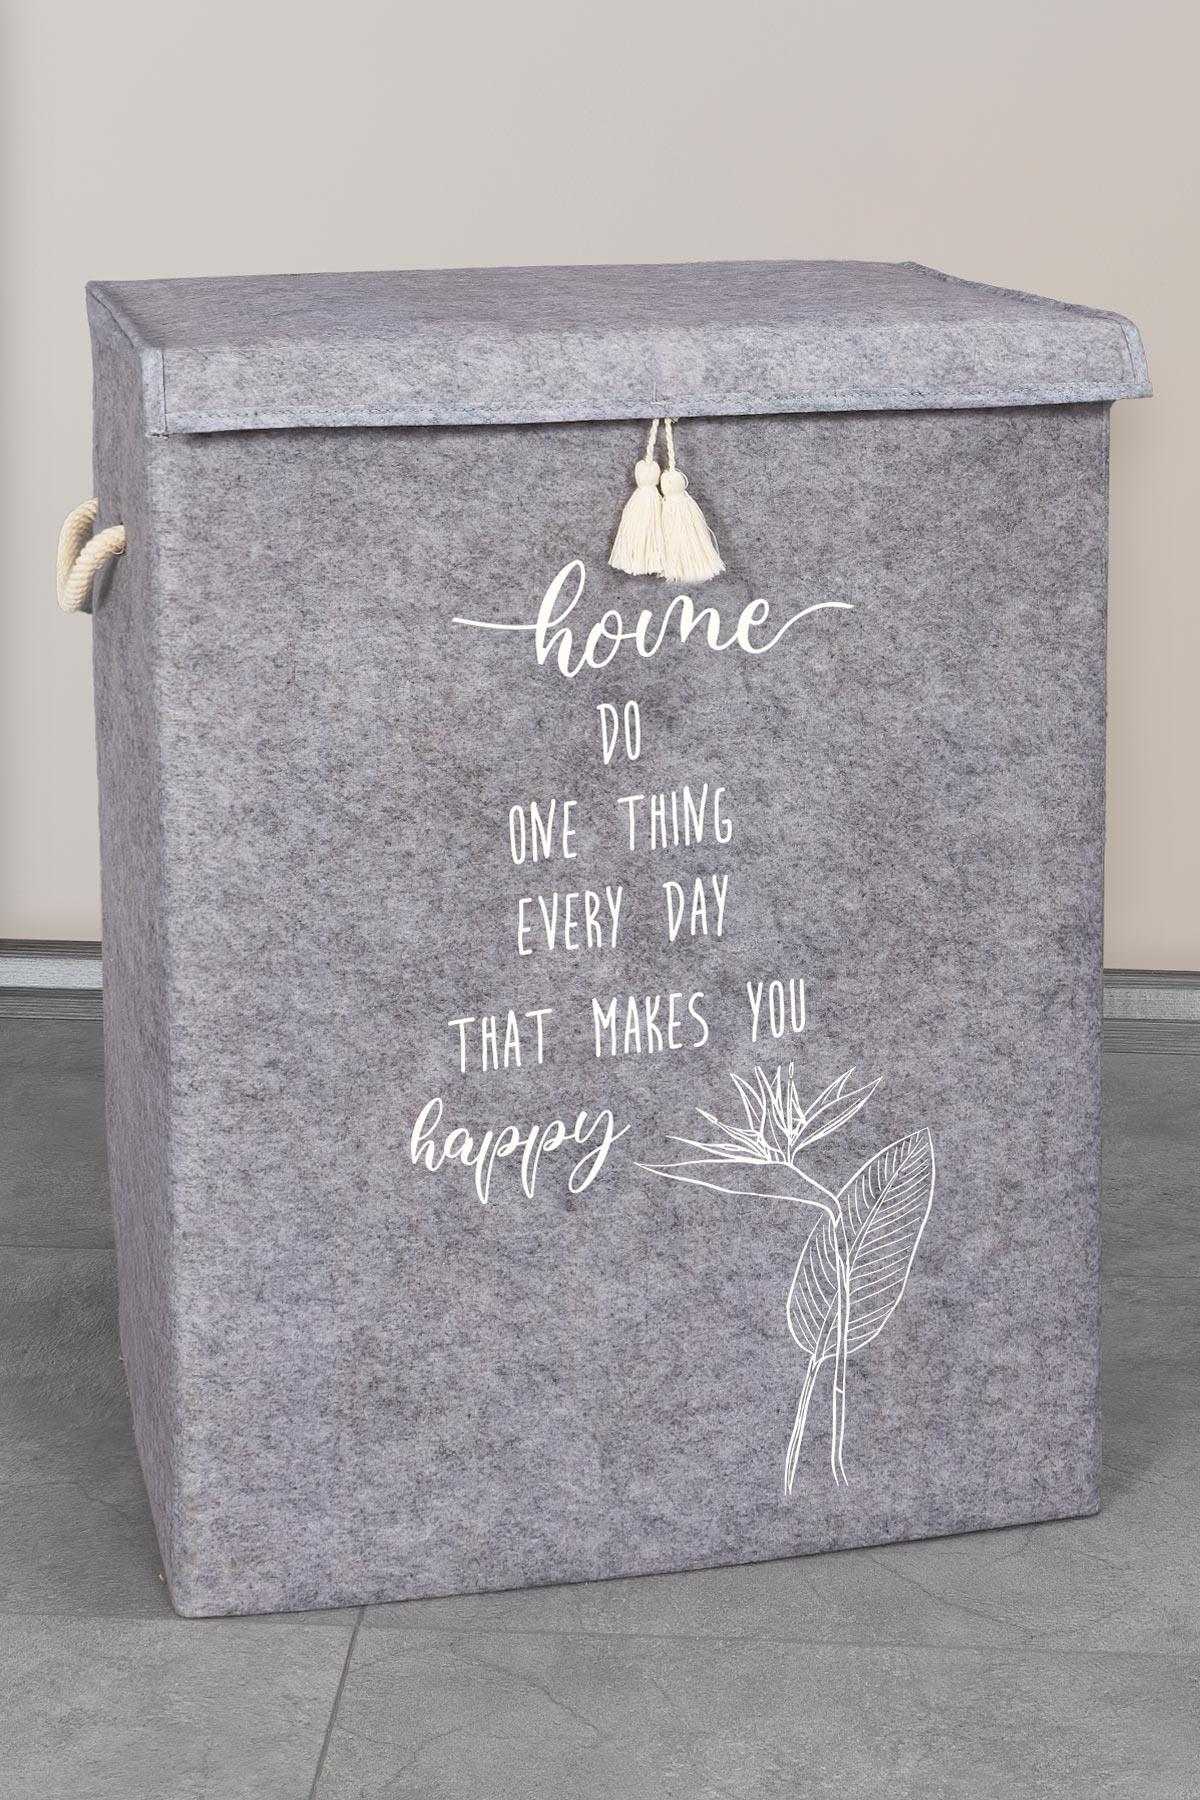 home
DO
ONE THING
EVERY DAY
THAT MAKES YOU
happy